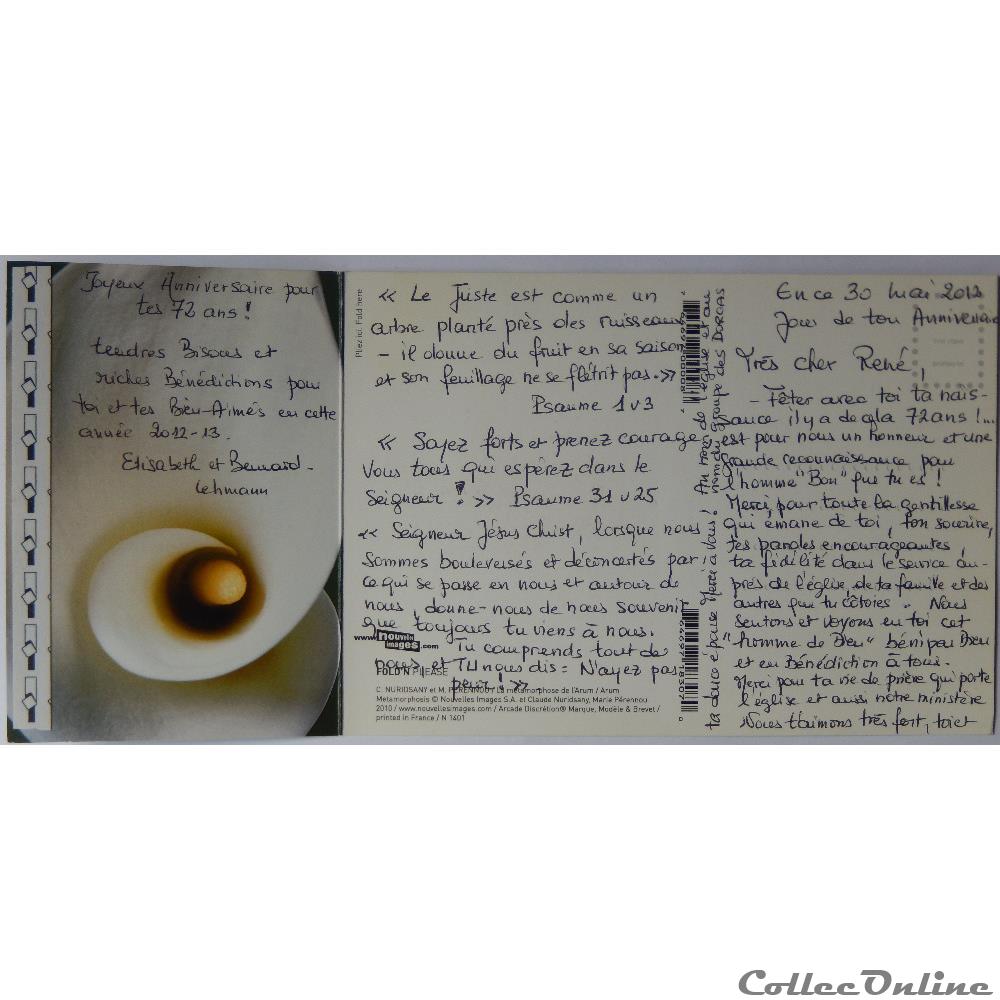 Joyeux Anniversaire pour
tes 72 ans !
tendres Bisous et
riches Bénédictions pour
toi et tes Bien-Aimés en cette
année 2012-13.
Elisabeth et Bernard-
Lehmann
Pliez ici. Fold here
« Le Juste est comme un
arbre planté près des ruisseaux
- il donne du fruit en sa saison
et son feuillage ne se flétrit pas. »
Psaume 1 v 3
« Soyez forts et prenez courage
Vous tous qui espérez dans le
Seigneur ! » Psaume 31 v 25
« Seigneur Jésus Christ, lorsque nous
sommes bouleversés et déconcertés par
ce qui se passe en nous et autour de
nous, donne-nous de nous souvenir
que toujours tu viens à nous.
Tu comprends tout de
nous, et TU nous dis = N'ayez pas
peur ! »
www.nouvelles images.com
FOLD'N PLEASE
C. NURIDSANY et M. PÉRENNOU La métamorphose de l'Arum / Arum
Metamorphosis © Nouvelles Images S.A. et Claude Nuridsany, Marie Pérennou
2010 / www.nouvellesimages.com / Arcade Discrétion® Marque, Modèle & Brevet /
printed in France / N 1401
En ce 30 Mai 2012
Jour de ton Anniversaire
Très Cher René,
- Fêter avec toi ta nais-
sance il y a de qla 72 ans !...
est pour nous un honneur et une
grande reconnaissance pour
l'homme "Bon" que tu es !
Merci, pour toute la gentillesse
qui émane de toi, ton sourire,
tes paroles encourageantes,
ta fidélité dans le service au-
près de l'église, de ta famille et des
autres que tu côtoies. Nous
sentons et voyons en toi cet
"homme de Dieu" béni par Dieu
et en Bénédiction à tous.
Merci pour ta vie de prière qui porte
l'église et aussi notre ministère
Nous t'aimons très fort, toi et
ta douce épouse Merci à vous ! Au nom de l'église et au
nom du groupe des DORCAS
CollecOnline